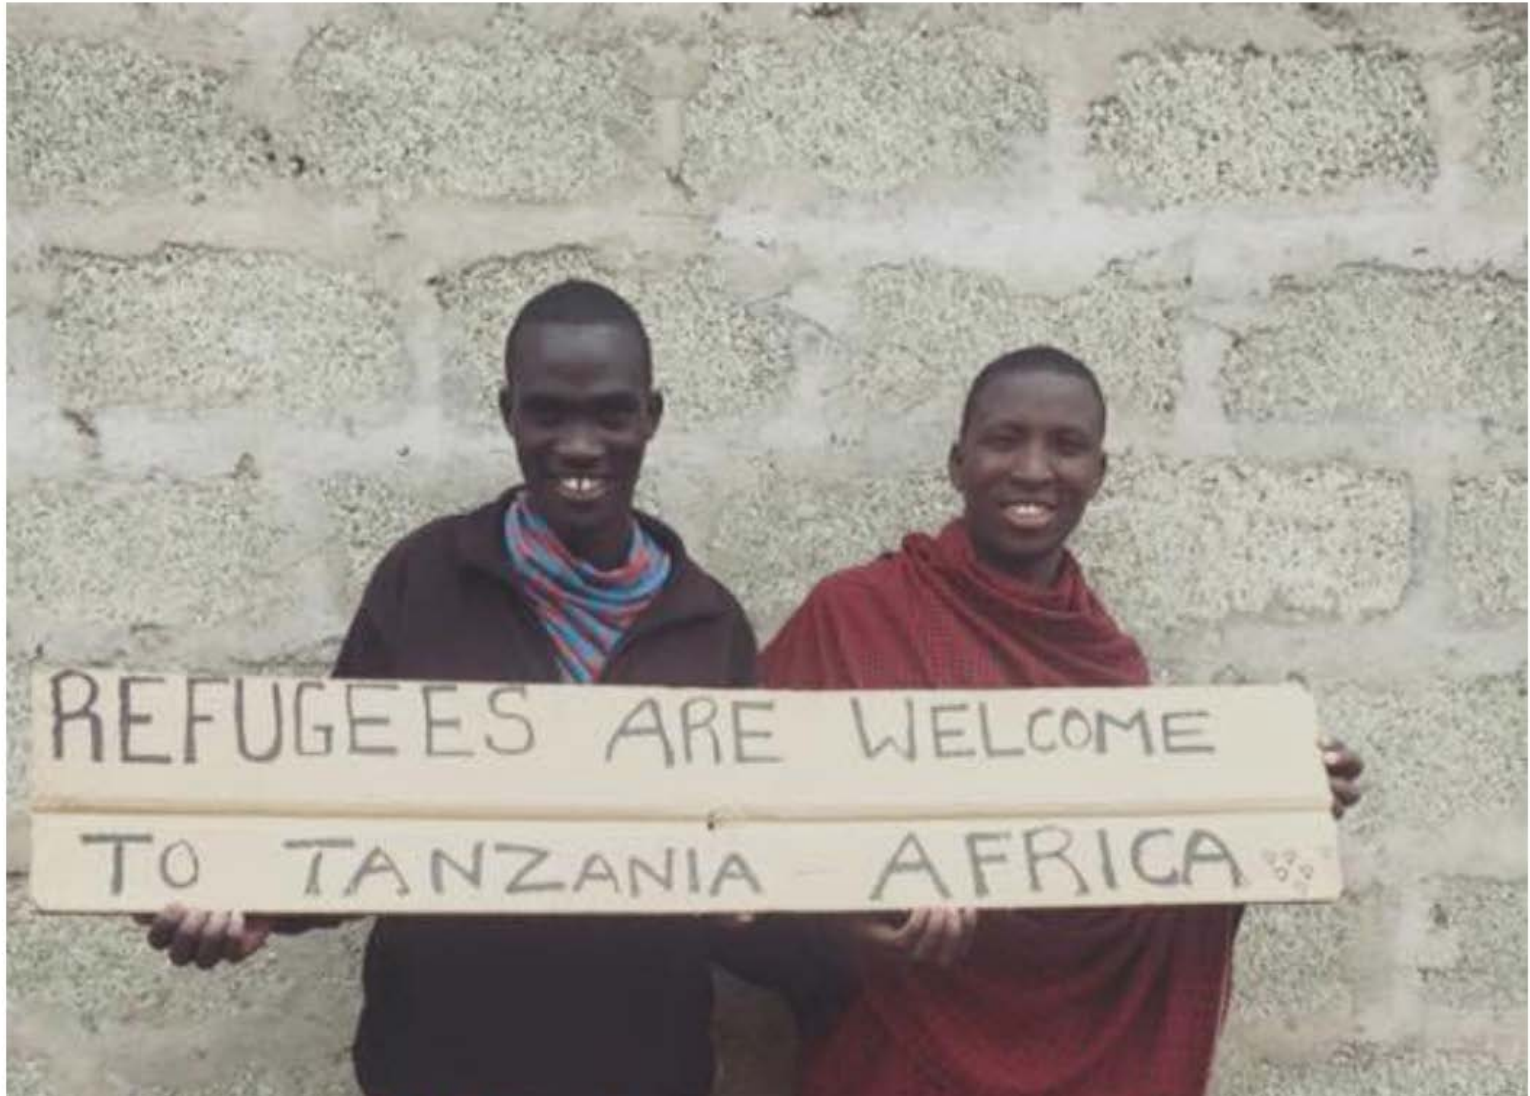 REFUGEES ARE WELCOME
TO TANZANIA - AFRICA